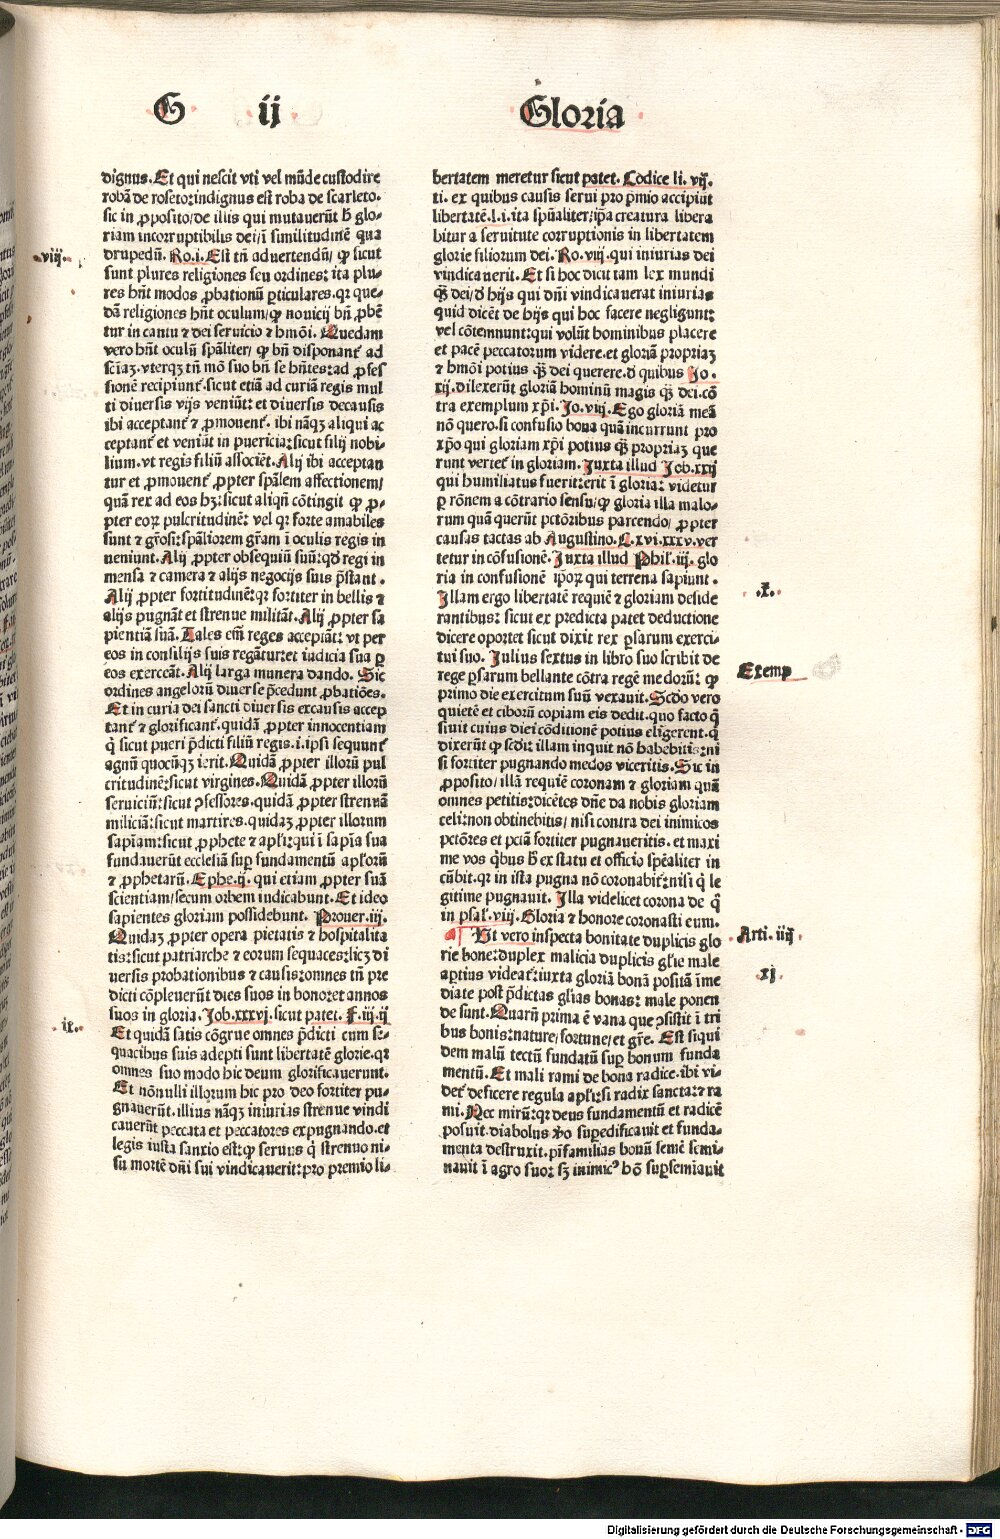 G ij Gloria
dignus. Et qui nescit vti vel mūde custodire
robā de roseto: indignus est roba de scarleto.
sic in ꝓposito/ de illis qui mutauerūt h̄ glo-
riam incorruptibilis dei/ ī similitudinē qua
.viij. drupedū. Ro.i. Est tn̄ aduertendū/ ꝙ sicut
sunt plures religiones seu ordines: ita plu-
res hn̄t modos ꝓbationū ꝑticulares. qꝛ que-
dā religiones hn̄t oculum/ ꝙ nouicij bn̄ ꝓbē
tur in cantu ⁊ dei seruicio ⁊ hmōi. Quedam
vero hn̄t oculū sp̄aliter/ ꝙ bn̄ disponant᷑ ad
sciaꝫ. vterqꝫ tn̄ mō suo bn̄ se hn̄tes: ad ꝓfes
sionē recipiunt᷑. sicut etiā ad curiā regis mul
ti diuersis vijs veniūt: et diuersis decausis
ibi acceptant᷑ ⁊ ꝓmouent᷑. ibi nāqꝫ aliqui ac
ceptant᷑ et veniūt in puericia: sicut filij nobi-
lium. vt regis filiū associēt. Alij ibi acceptan
tur et ꝓmouent᷑ ꝓpter sp̄alem affectionem/
quā rex ad eos hꝫ: sicut aliqn̄ cōtingit ꝙ ꝓ-
pter eoꝝ pulcritudinē: vel qꝛ forte amabiles
sunt ⁊ gr̄osi: sp̄aliorem gr̄am ī oculis regis in
ueniunt. Alij ꝓpter obsequiū suū: qd̄ regi in
mensa ⁊ camera ⁊ alijs negocijs suis p̄stant.
Alij ꝓpter fortitudinē: qꝛ fortiter in bellis ⁊
alijs pugnāt et strenue militāt. Alij ꝓpter sa
pientiā suā. Tales em̄ reges acceptāt: vt per
eos in consilijs suis regātur: et iudicia sua ꝑ
eos exerceāt. Alij larga munera dando. Sic
ordines angelorū diuerse p̄cedunt ꝓbatiōes.
Et in curia dei sancti diuersis excausis accep
tant᷑ ⁊ glorificant᷑. quidā ꝓpter innocentiam
q̄ sicut pueri p̄dicti filiū regis .i. ipsi sequunt᷑
agnū quocūqꝫ ierit. Quidā ꝓpter illorū pul
critudinē: sicut virgines. Quidā ꝓpter illorū
seruiciū: sicut ꝯfessores. quidā ꝓpter strennuā
miliciā: sicut martires. quidaꝫ ꝓpter illorum
sapīam: sicut ꝓphete ⁊ apl̄i: qui ī sapīa sua
fundauerūt ecclesiā suꝑ fundamentū apl̄orū
⁊ ꝓphetarū. Ephe.ij. qui etiam ꝓpter suā
scientiam/ secum orbem iudicabunt. Et ideo
sapientes gloriam possidebunt. Prouer.iij.
Quidaꝫ ꝓpter opera pietatis ⁊ hospitalita
tis: sicut patriarche ⁊ eorum sequaces: licꝫ di
uersis probationibus ⁊ causis: omnes tn̄ pre
dicti cōpleuerūt dies suos in bono: et annos
suos in gloria. Job.xxxvj. sicut patet. F.iij.ij
.ix. Et quidā satis cōgrue omnes p̄dicti cum se-
quacibus suis adepti sunt libertatē glorie. qꝛ
omnes suo modo hic deum glorificauerunt.
Et nōnulli illorum hic pro deo fortiter pu-
gnauerūt. illius nāqꝫ iniurias strenue vindi
cauerūt peccata et peccatores expugnando. et
legis iusta sanxio est: ꝙ seruus q̄ strenuo ni-
su mortē dn̄i sui vindicauerit: pro premio li-
bertatem meretur sicut patet. Codice li. vij.
ti. ex quibus causis serui pro p̄mio accipiūt
libertatē. l.i. ita sp̄ualiter/ ip̄a creatura libera
bitur a seruitute corruptionis in libertatem
glorie filiorum dei. Ro. viij. qui iniurias dei
vindicauerit. Et si hoc dicit tam lex mundi
qꝫ̄ dei/ d̄ hijs qui dn̄i vindicauerat iniurias
quid dicēt de hijs qui hoc facere negligunt:
vel cōtemnunt: qui volūt hominibus placere
et pacē peccatorum videre. et gloriā propriaꝫ
⁊ hmōi potius qꝫ̄ dei querere. d̄ quibus Jo.
xij. dilexerūt gloriā hominū magis qꝫ̄ dei. cō
tra exemplum xp̄i. Jo. viij. Ego gloriā meā
nō quero. si confusio bona quā incurrunt pro
xp̄o qui gloriam xp̄i potius qꝫ̄ propriaꝫ que
runt vertet᷑ in gloriam. Juxta illud Job.xxij
qui humiliatus fuerit: erit ī gloria: videtur
ꝑ rōnem a cōtrario sensu/ ꝙ gloria illa malo-
rum quā querūt pctōribus parcendo/ ꝓpter
causas tactas ab Augustino. L.xvi.xxxv. ver
tetur in cōfusionē. Juxta illud Phil᷑.iij. glo
ria in confusionē ip̄oꝝ qui terrena sapiunt.
.x. Illam ergo libertatē requiē ⁊ gloriam deside
rantibus: sicut ex predicta patet deductione
dicere oportet sicut dixit rex ꝑsarum exerci-
tui suo. Julius sextus in libro suo scribit de
Exemp rege ꝑsarum bellante cōtra regē medorū: ꝙ
primo die exercitum suū vexauit. Scd̄o vero
quietē et ciborū copiam eis dedit. quo facto q̄
siuit cuius diei cōditionē potius eligerent. q̄
dixerūt ꝙ scd̄i: illam inquit nō habebitis: ni
si fortiter pugnando medos viceritis. Sic in
ꝓposito/ illā requiē coronam ⁊ gloriam quā
omnes petitis: dicētes dn̄e da nobis gloriam
celi: non obtinebitis/ nisi contra dei inimicos
pctōres et pctā fortiter pugnaueritis. et maxi
me vos q̇bus h̄ ex statu et officio sp̄ealiter in
cūbit. qꝛ in ista pugna nō coronabit᷑: nisi q̇ le
gitime pugnauit. Illa videlicet corona de q̄
in psal᷑.viij. Gloria ⁊ honore coronasti eum.
Arti. iiij. ¶ Vt vero inspecta bonitate duplicis glo
rie bone: duplex malicia duplicis gl̄ie male
xj aꝑtius videat᷑: iuxta gloriā bonā positā īme
diate post p̄dictas gl̄ias bonas: male ponen
de sunt. Quarū prima ē vana que ꝯsistit ī tri
bus bonis: nature/ fortune/ et gr̄e. Est siqui
dem malū tectū fundatū suꝑ bonum funda
mentū. Et mali rami de bona radice. ibi vi-
det᷑ deficere regula apl̄i: si radix sancta: ⁊ ra
mi. Nec mirū: qꝛ deus fundamentū et radicē
posuit. diabolus v̄o suꝑedificauit et funda-
menta destruxit. pr̄familias bonū semē semi-
nauit ī agro suo: sꝫ inimicꝰ hō suꝑseminauit